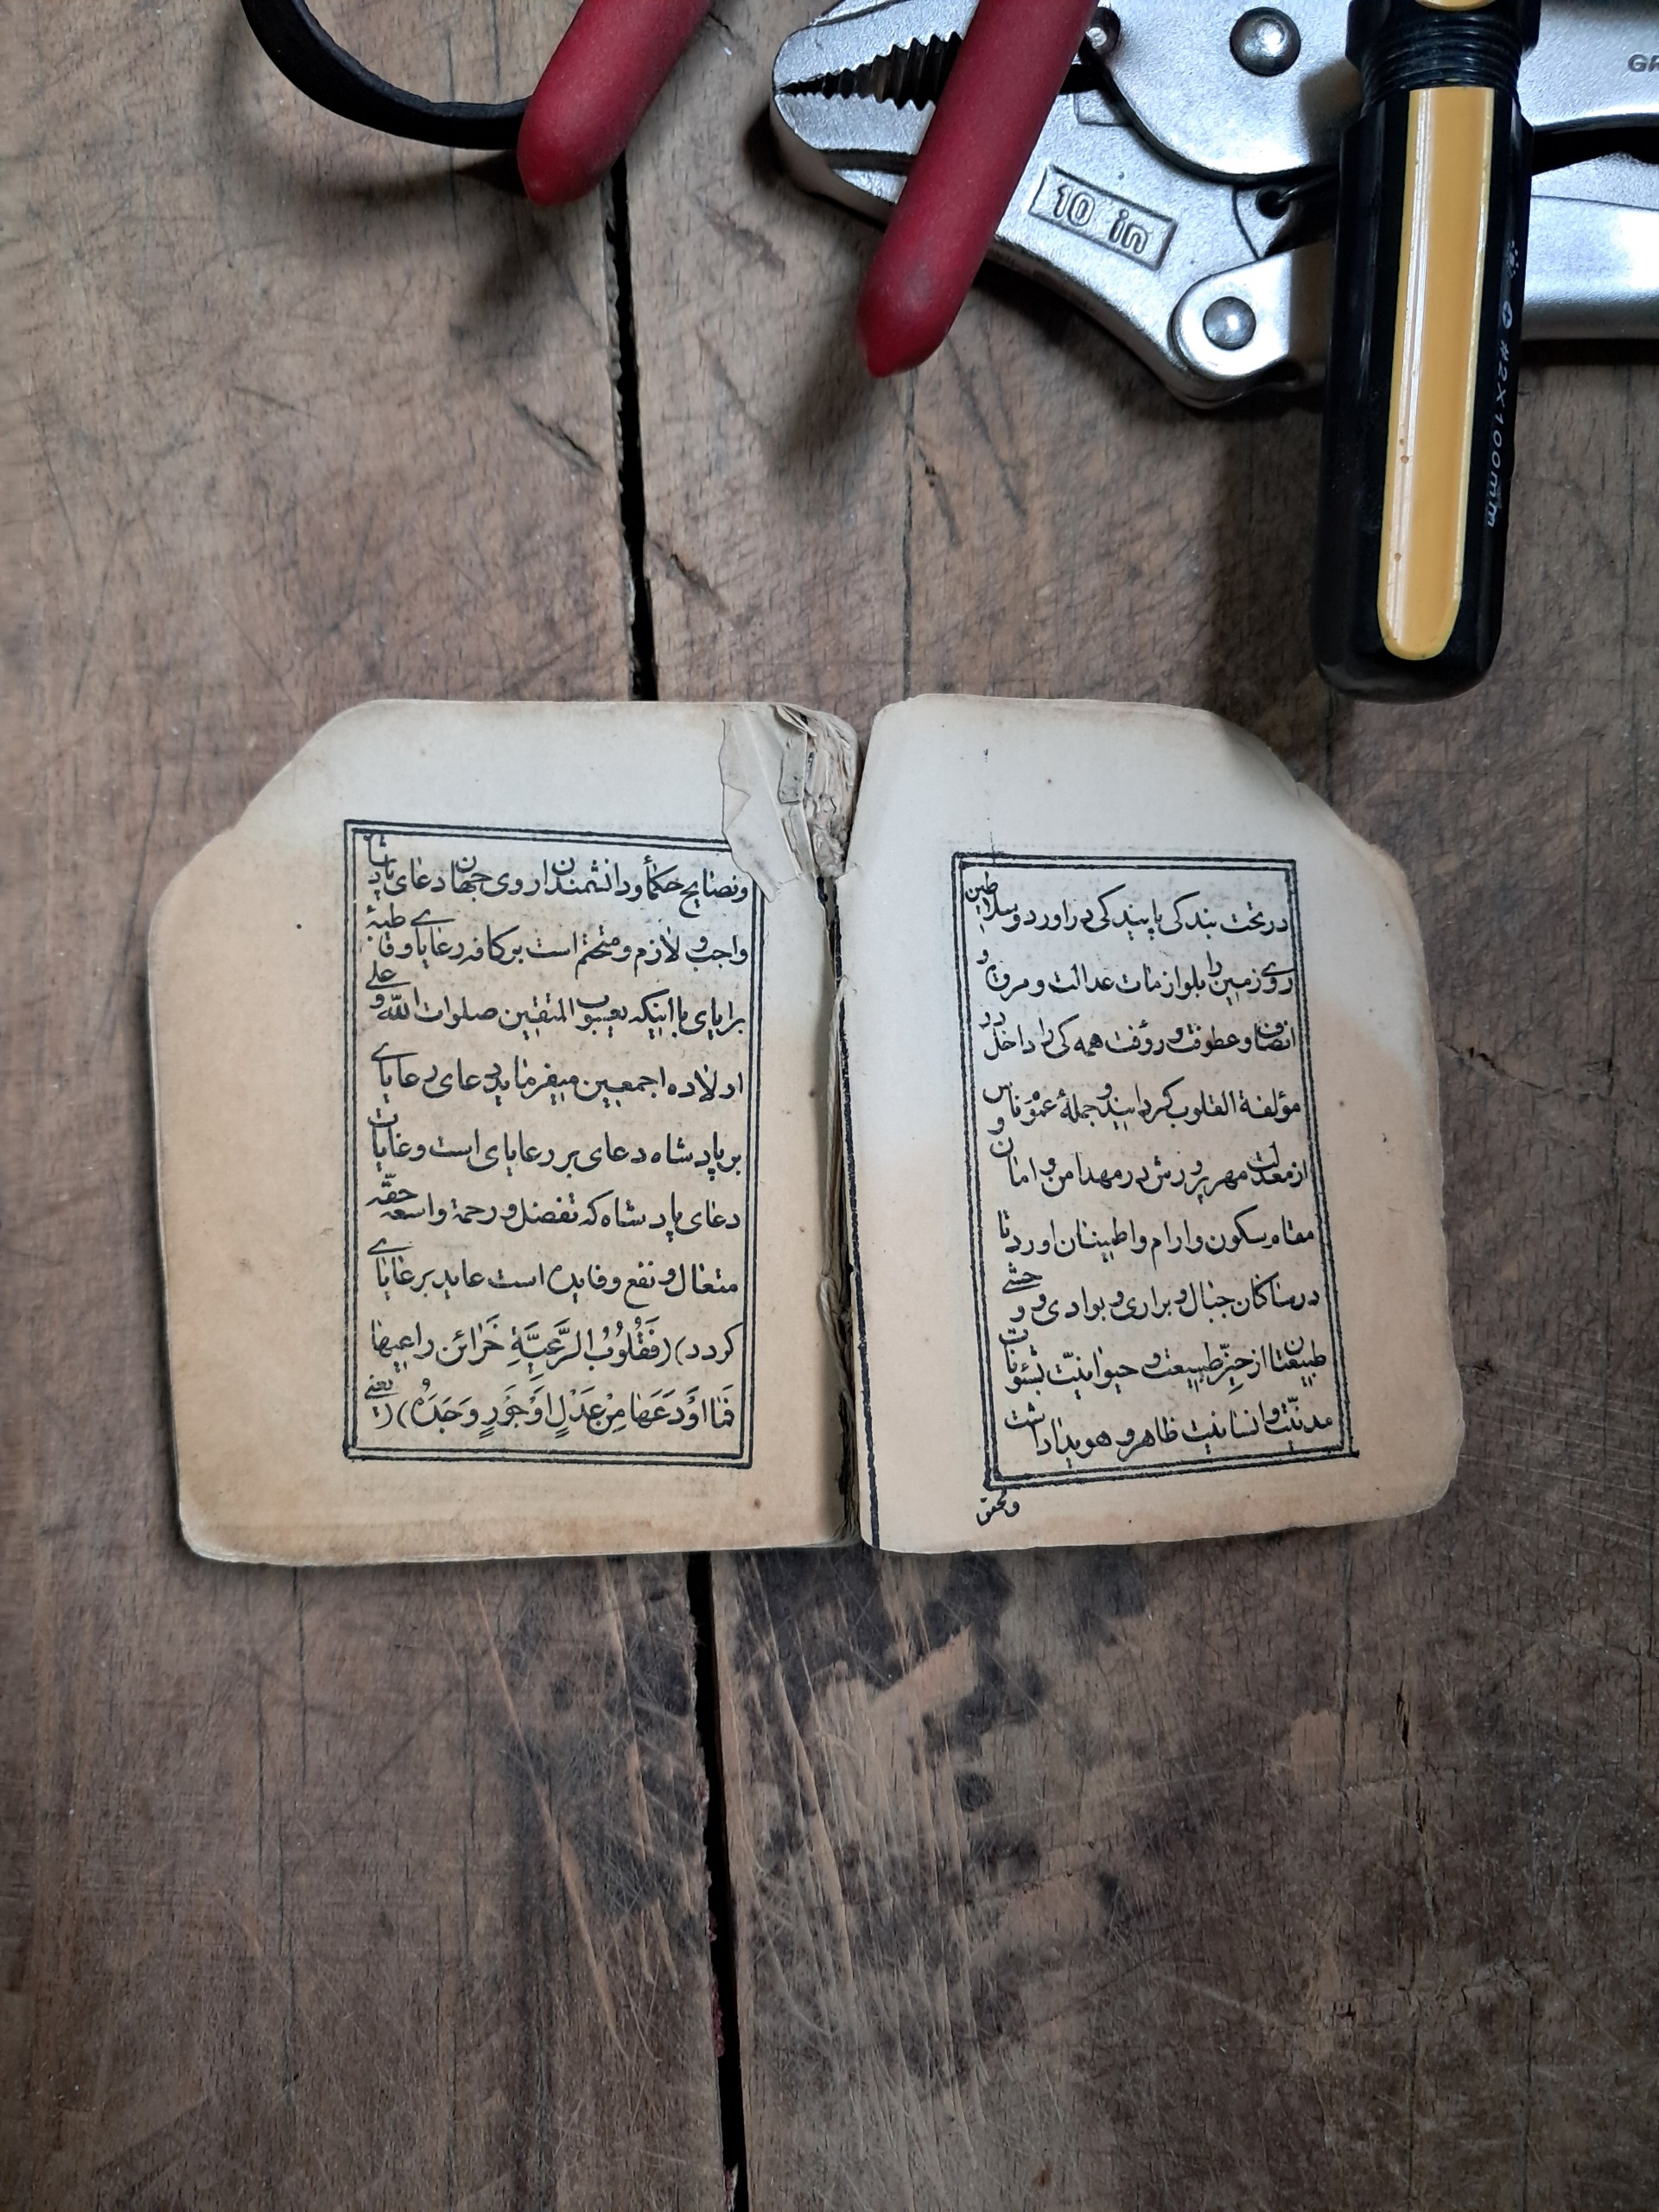 GR
10 in
#2X100mm
در تحت بندکی پابیندکی دراورد و سلاطین
روی زمین را بلوازمات عدالت و مروت و
انصاف و عطوفت و رؤفت همه کی را داخل در
مؤلفة القلوب کردانیند و جملهٔ عموم ناس و
از معدلت مهر پرورش در مهد امن و امان
مقام سکون و ارام و اطمینان اورد تا
در ساکنان جبال و براری و بوادی و وحشی
طبیعتان از حیّز طبیعت و حیوانیّت بشئونات
مدنیّت و انسانیت ظاهر و هویدا داشت
و محقق
و نصایح حکمأ و دانشمندان روی جهان دعای پادشاه
واجب و لازم و متحتم است بر کافه رعایا و قاطبهٔ
برایای با اینکه یعسوب المتقین صلوات الله علی و
اولاده اجمعین میفرماید دعای رعایای
بر پادشاه دعای بر رعایای است و غایات
دعای پادشاه که تفضل و رحمة واسعه حقه
متعال و نفع و فایده است عاید بر رعایای
کردد) (فَقُلُوبُ الرَّعِیَّةِ خَزائن راعیها
فَمٰا اَوْدَعَهٰا مِنْ عَدْلٍ اَوْ جَوْرٍ وَجَدَهُ) (یعنی